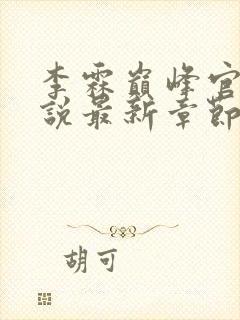 李霖巅峰官
说最新章節
胡可